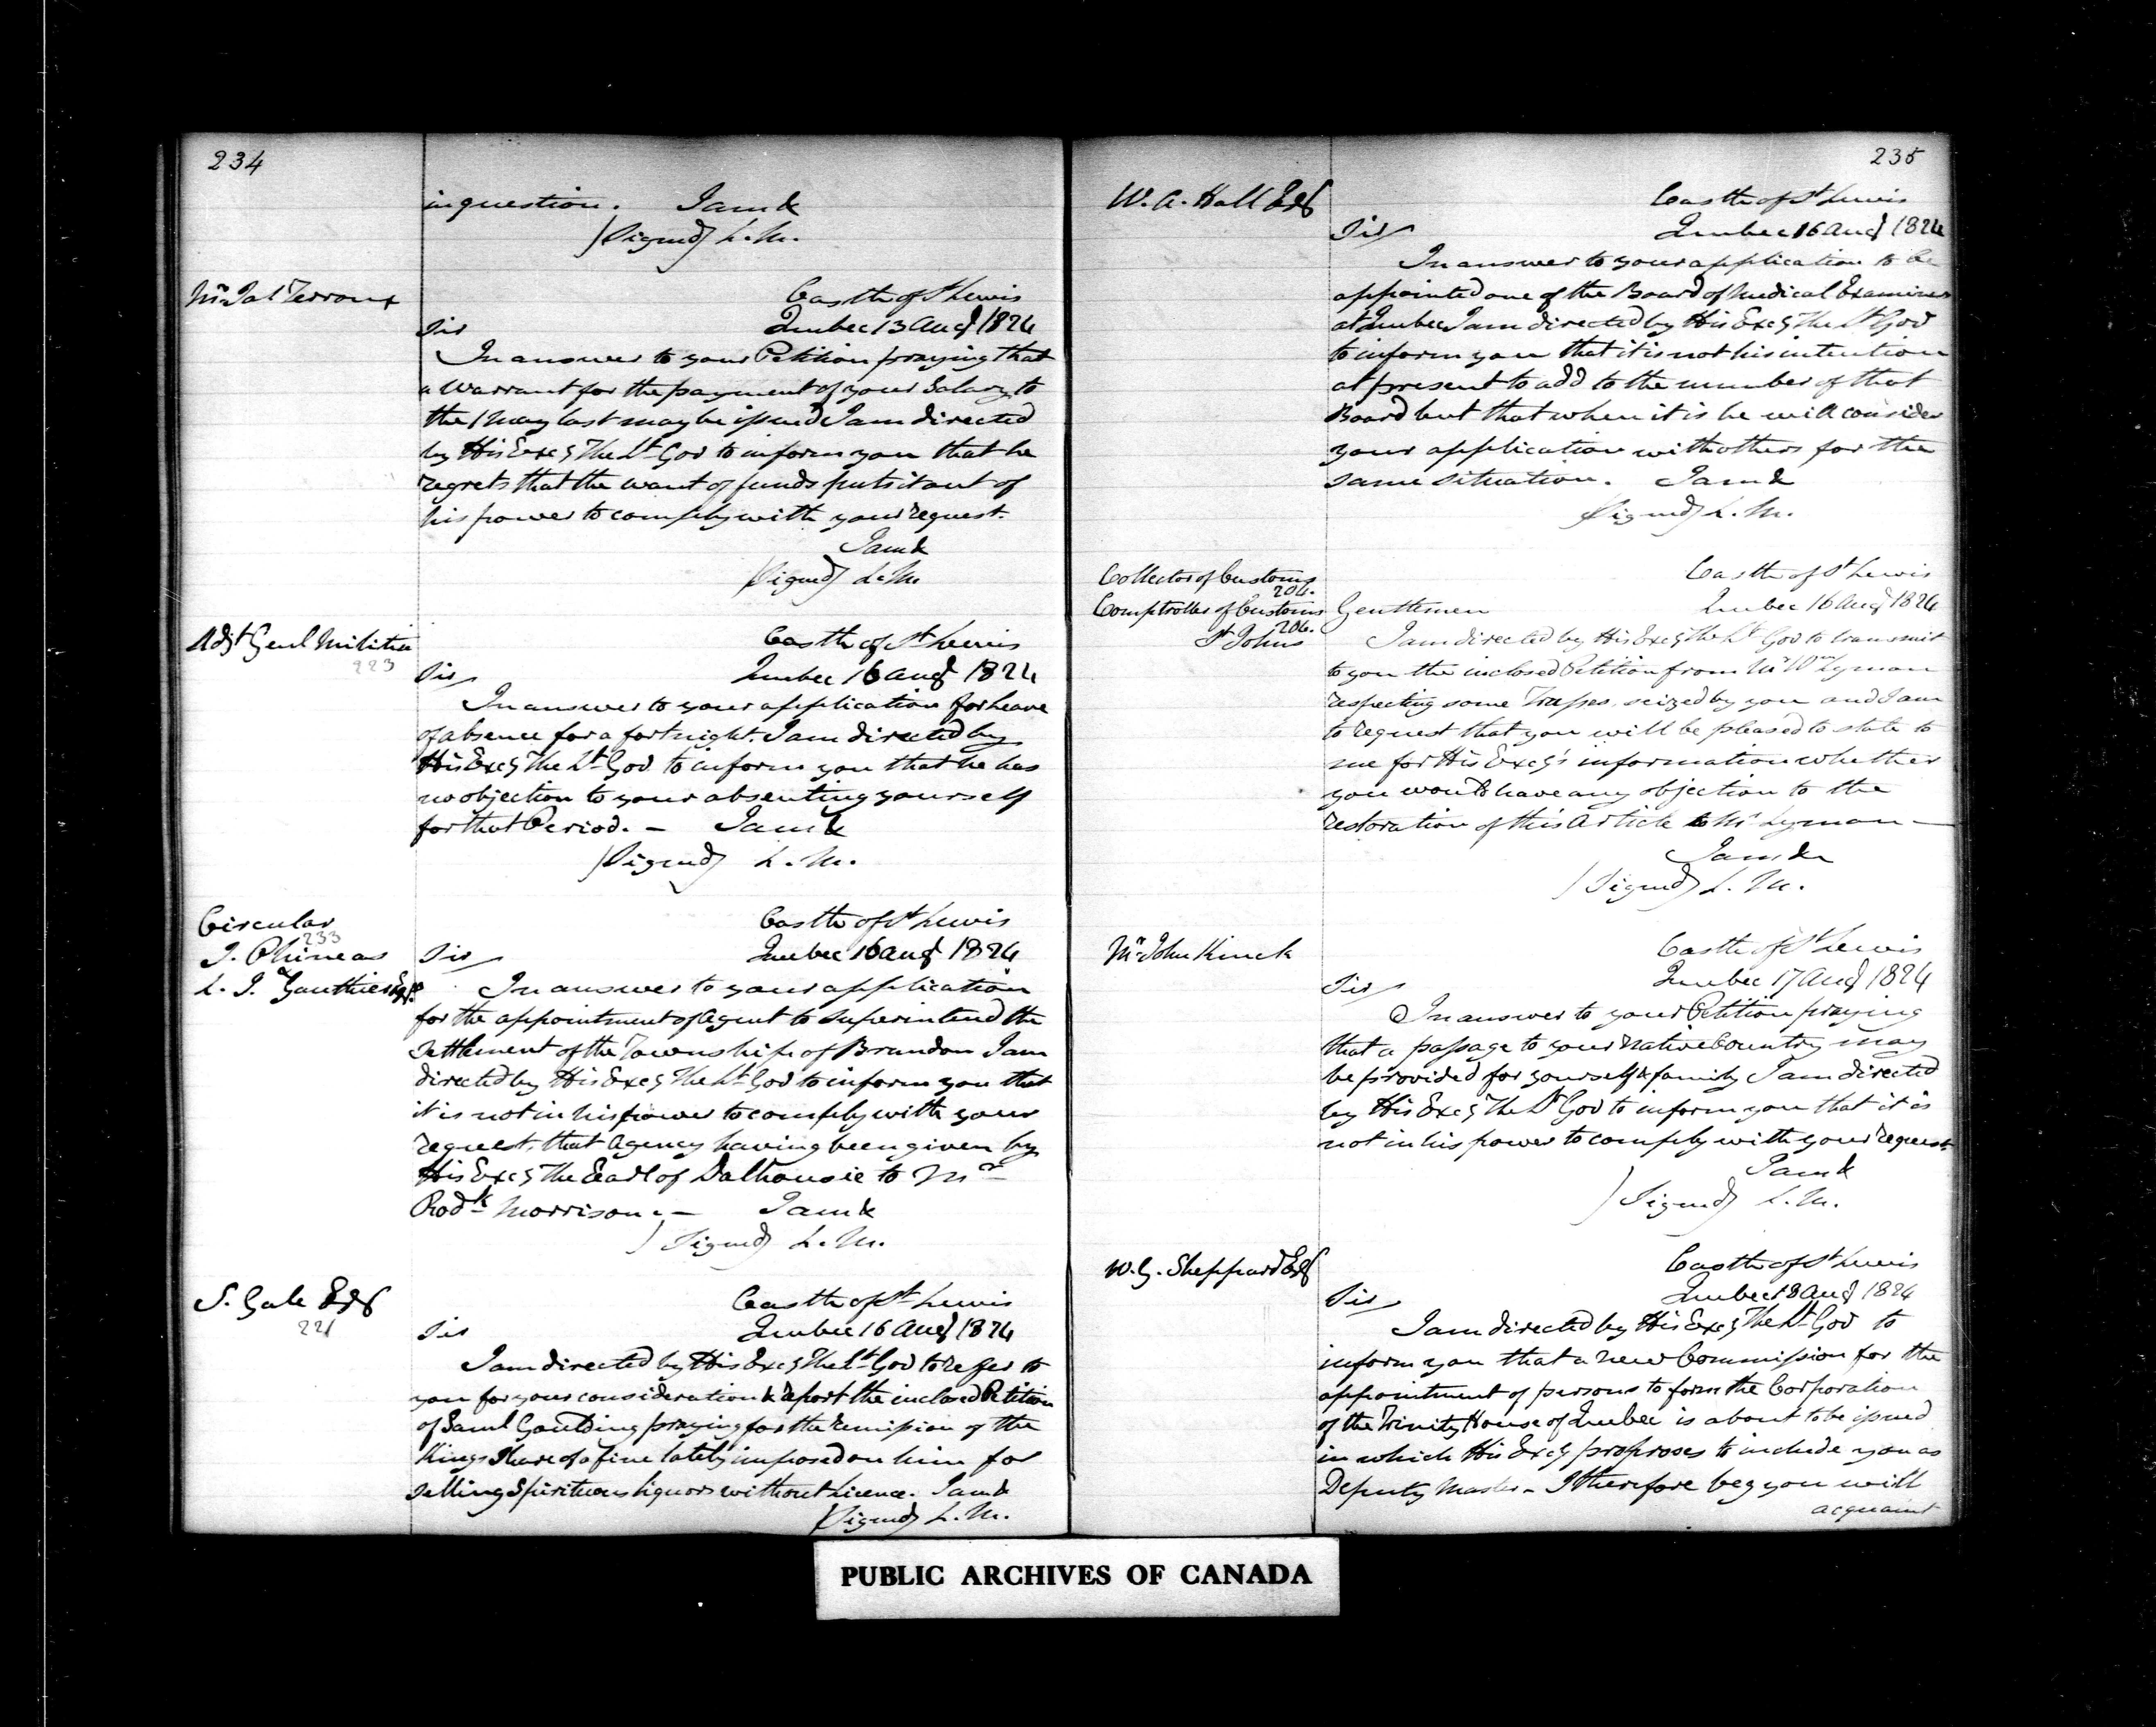 234
in question. I am &
(Signed) L. M.
Castle of St Lewis
Sir
Quebec 13 Augt 1824
In answer to your Petition praying that
a Warrant for the payment of your Salary to
the 1 May last may be issued I am directed
by His Excy The Lt Gov to inform you that he
regrets that the want of funds puts it out of
his power to comply with your request.
I am &
(Signed) L. M.
Adjt Genl Militia
223
Castle of St Lewis
Sir
Quebec 16 Augt 1824
In answer to your application for leave
of absence for a fortnight. I am directed by
His Excy The Lt Gov to inform you that he has
no objection to your absenting yourself
for that Period. – I am &
(Signed) L. M.
Circular
233
J. Phineas
L. J. Gauthier Esqr
Castle of St Lewis
Sir
Quebec 16 Augt 1824
In answer to your application
for the appointment of Agent to superintend the
Settlement of the Township of Brandon I am
directed by His Excy The Lt Gov to inform you that
it is not in his power to comply with your
request, that Agency having been given by
His Excy The Earl of Dalhousie to Mr
Rodk Morrison. – I am &
(Signed) L. M.
S. Gale Esqr
221
Castle of St Lewis
Sir
Quebec 16 Augt 1824
I am directed by His Excy The Lt Gov to refer to
you for your consideration & report the inclosed Petition
of Saml Goulding praying for the remission of the
Kings Share of a fine lately imposed on him for
selling Spirituous liquors without Licence. I am &
(Signed) L. M.
235
W. A. Hall Esqr
Castle of St Lewis
Sir
Quebec 16 Augt 1824
In answer to your application to be
appointed one of the Board of Medical Examiners
at Quebec I am directed by His Excy The Lt Gov
to inform you that it is not his intention
at present to add to the number of that
Board but that when it is he will consider
your application with others for the
same situation. I am &
(Signed) L. M.
Collector of Customs
204.
Comptroller of Customs
206.
St Johns
Castle of St Lewis
Gentlemen
Quebec 16 Augt 1824
I am directed by His Excy The Lt Gov to transmit
to you the inclosed Petition from Mr Wm Lyman
respecting some seized by you and I am
to request that you will be pleased to state to
me for His Excy's information whether
you would have any objection to the
restoration of this Article to Mr Lyman –
I am &
(Signed) L. M.
Mr John Kinck
Castle of St Lewis
Quebec 17 Augt 1824
Sir
In answer to your Petition praying
that a passage to your native Country may
be provided for yourself & family I am directed
by His Excy The Lt Gov to inform you that it is
not in his power to comply with your request.
I am &
(Signed) L. M.
W. G. Sheppard Esqr
Castle of St Lewis
Quebec 18 Augt 1824
Sir
I am directed by His Excy The Lt Gov to
inform you that a new Commission for the
appointment of persons to form the Corporation
of the Trinity House of Quebec is about to be issued
in which His Excy proposes to include you as
Deputy Master – I therefore beg you will
acquaint
PUBLIC ARCHIVES OF CANADA